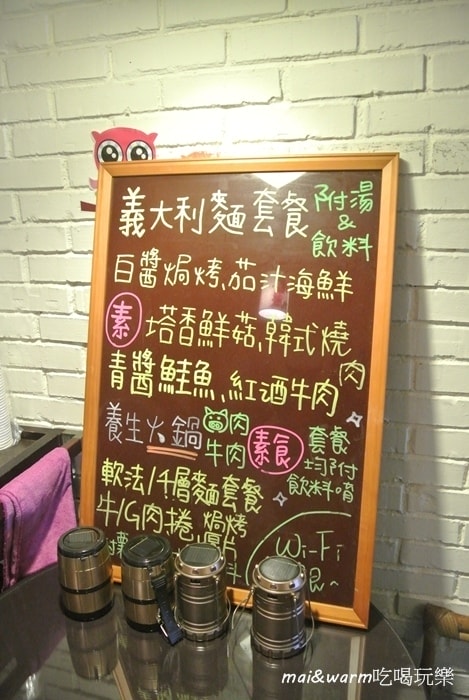 義大利麵套餐 附湯
&
飲料
白醬焗烤、茄汁海鮮
素 塔香鮮菇、韓式燒
肉
青醬鮭魚、紅酒牛肉
養生火鍋 肉
牛肉
素食 套餐
均附
飲料唷
軟法/千層麵套餐
牛/G肉捲 焗烤
厚片
Wi-Fi
mai&warm吃喝玩樂